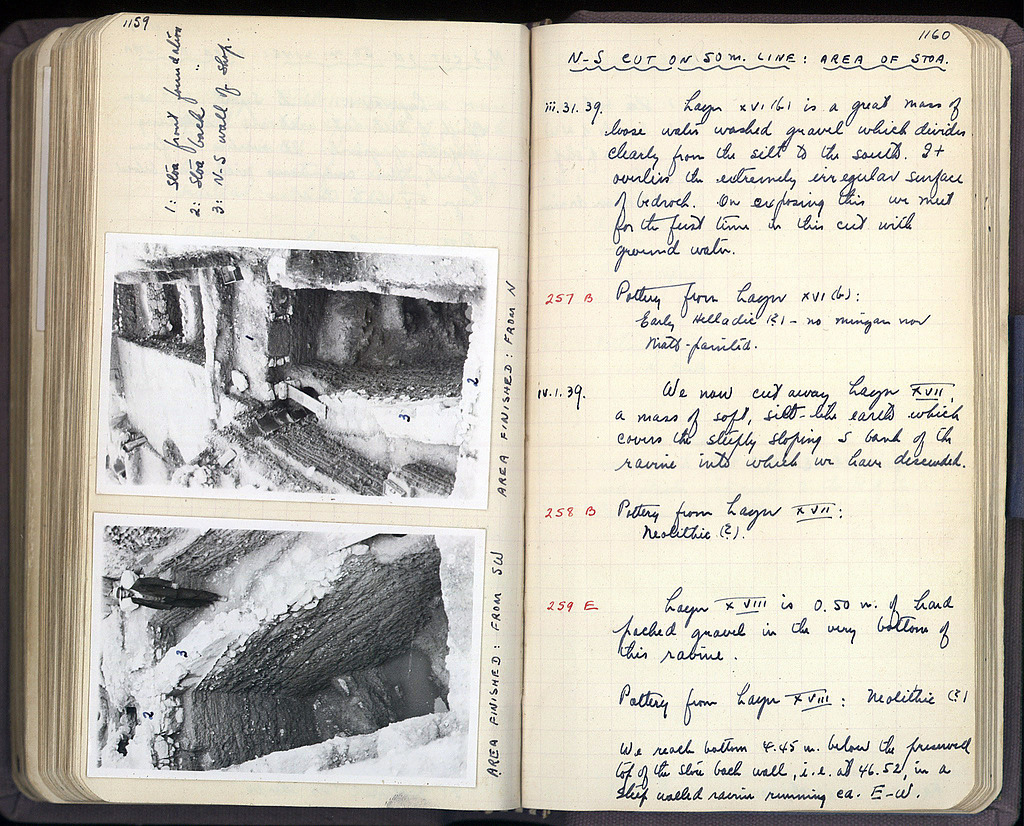 1159
1: Stoa front foundation
2: Stoa back "
3: N-S wall of shop.
1
2
3
AREA FINISHED: FROM N
3
2
AREA FINISHED: FROM SW
1160
N-S CUT ON 50 M. LINE: AREA OF STOA.
iii.31.39. Layer XVI (b) is a great mass of
loose water washed gravel which divides
clearly from the silt to the south. It
overlies the extremely irregular surface
of bedrock. On exposing this we meet
for the first time in this cut with
ground water.
257 B Pottery from Layer XVI (b):
Early Helladic (?) - no minyan nor
Matt-painted.
iv.1.39. We now cut away Layer XVII,
a mass of soft, silt-like earth which
covers the steeply sloping S bank of the
ravine into which we have descended.
258 B Pottery from Layer XVII:
Neolithic (?).
259 E Layer XVIII is 0.50 m. of hard
packed gravel in the very bottom of
this ravine.
Pottery from Layer XVIII: Neolithic (?)
We reach bottom 4.45 m. below the preserved
top of the stoa back wall, i.e. at 46.52, in a
steep walled ravine running ca. E-W.